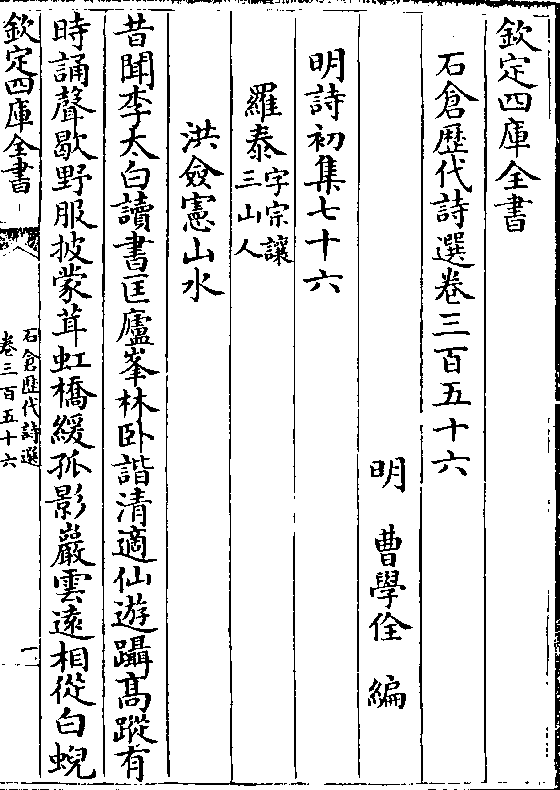 欽定四庫全書
石倉歴代詩選卷三百五十六
明 曹學佺 編
明詩初集七十六
羅泰字宗讓
三山人
洪僉憲山水
昔聞李太白讀書匡廬峯林卧諧清適仙遊躡髙蹤有
時誦聲歇野服披蒙茸虹橋緩孤影巖雲遠相從白蜺
欽定四庫全書
石倉歴代詩選
卷三百五十六
一